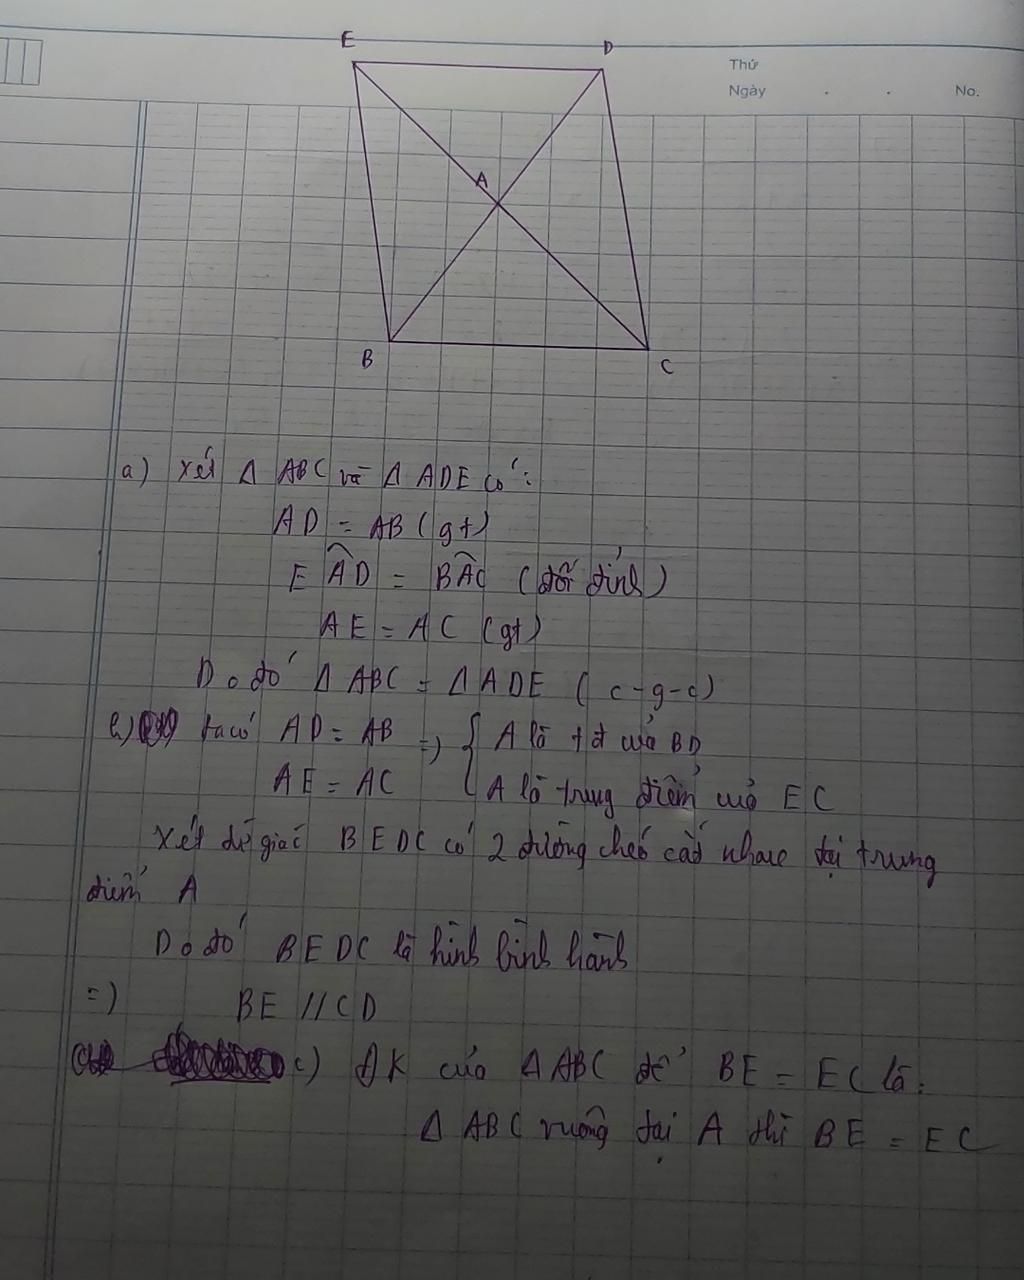 E D
Thứ
Ngày . . No.
A
B C
a) Xét Δ ABC và Δ ADE có:
AD = AB (gt)
EÂD = BÂC (đối đỉnh)
AE = AC (gt)
Do đó Δ ABC = Δ ADE (c-g-c)
b) ta có AD = AB =) { A là tđ của BD
AE = AC A là trung điểm của EC
Xét tứ giác BEDC có 2 đường chéo cắt nhau tại trung
điểm A
Do đó BEDC là hình bình hành
=) BE // CD
c) ĐK của Δ ABC để BE = EC là:
Δ ABC vuông tại A thì BE = EC